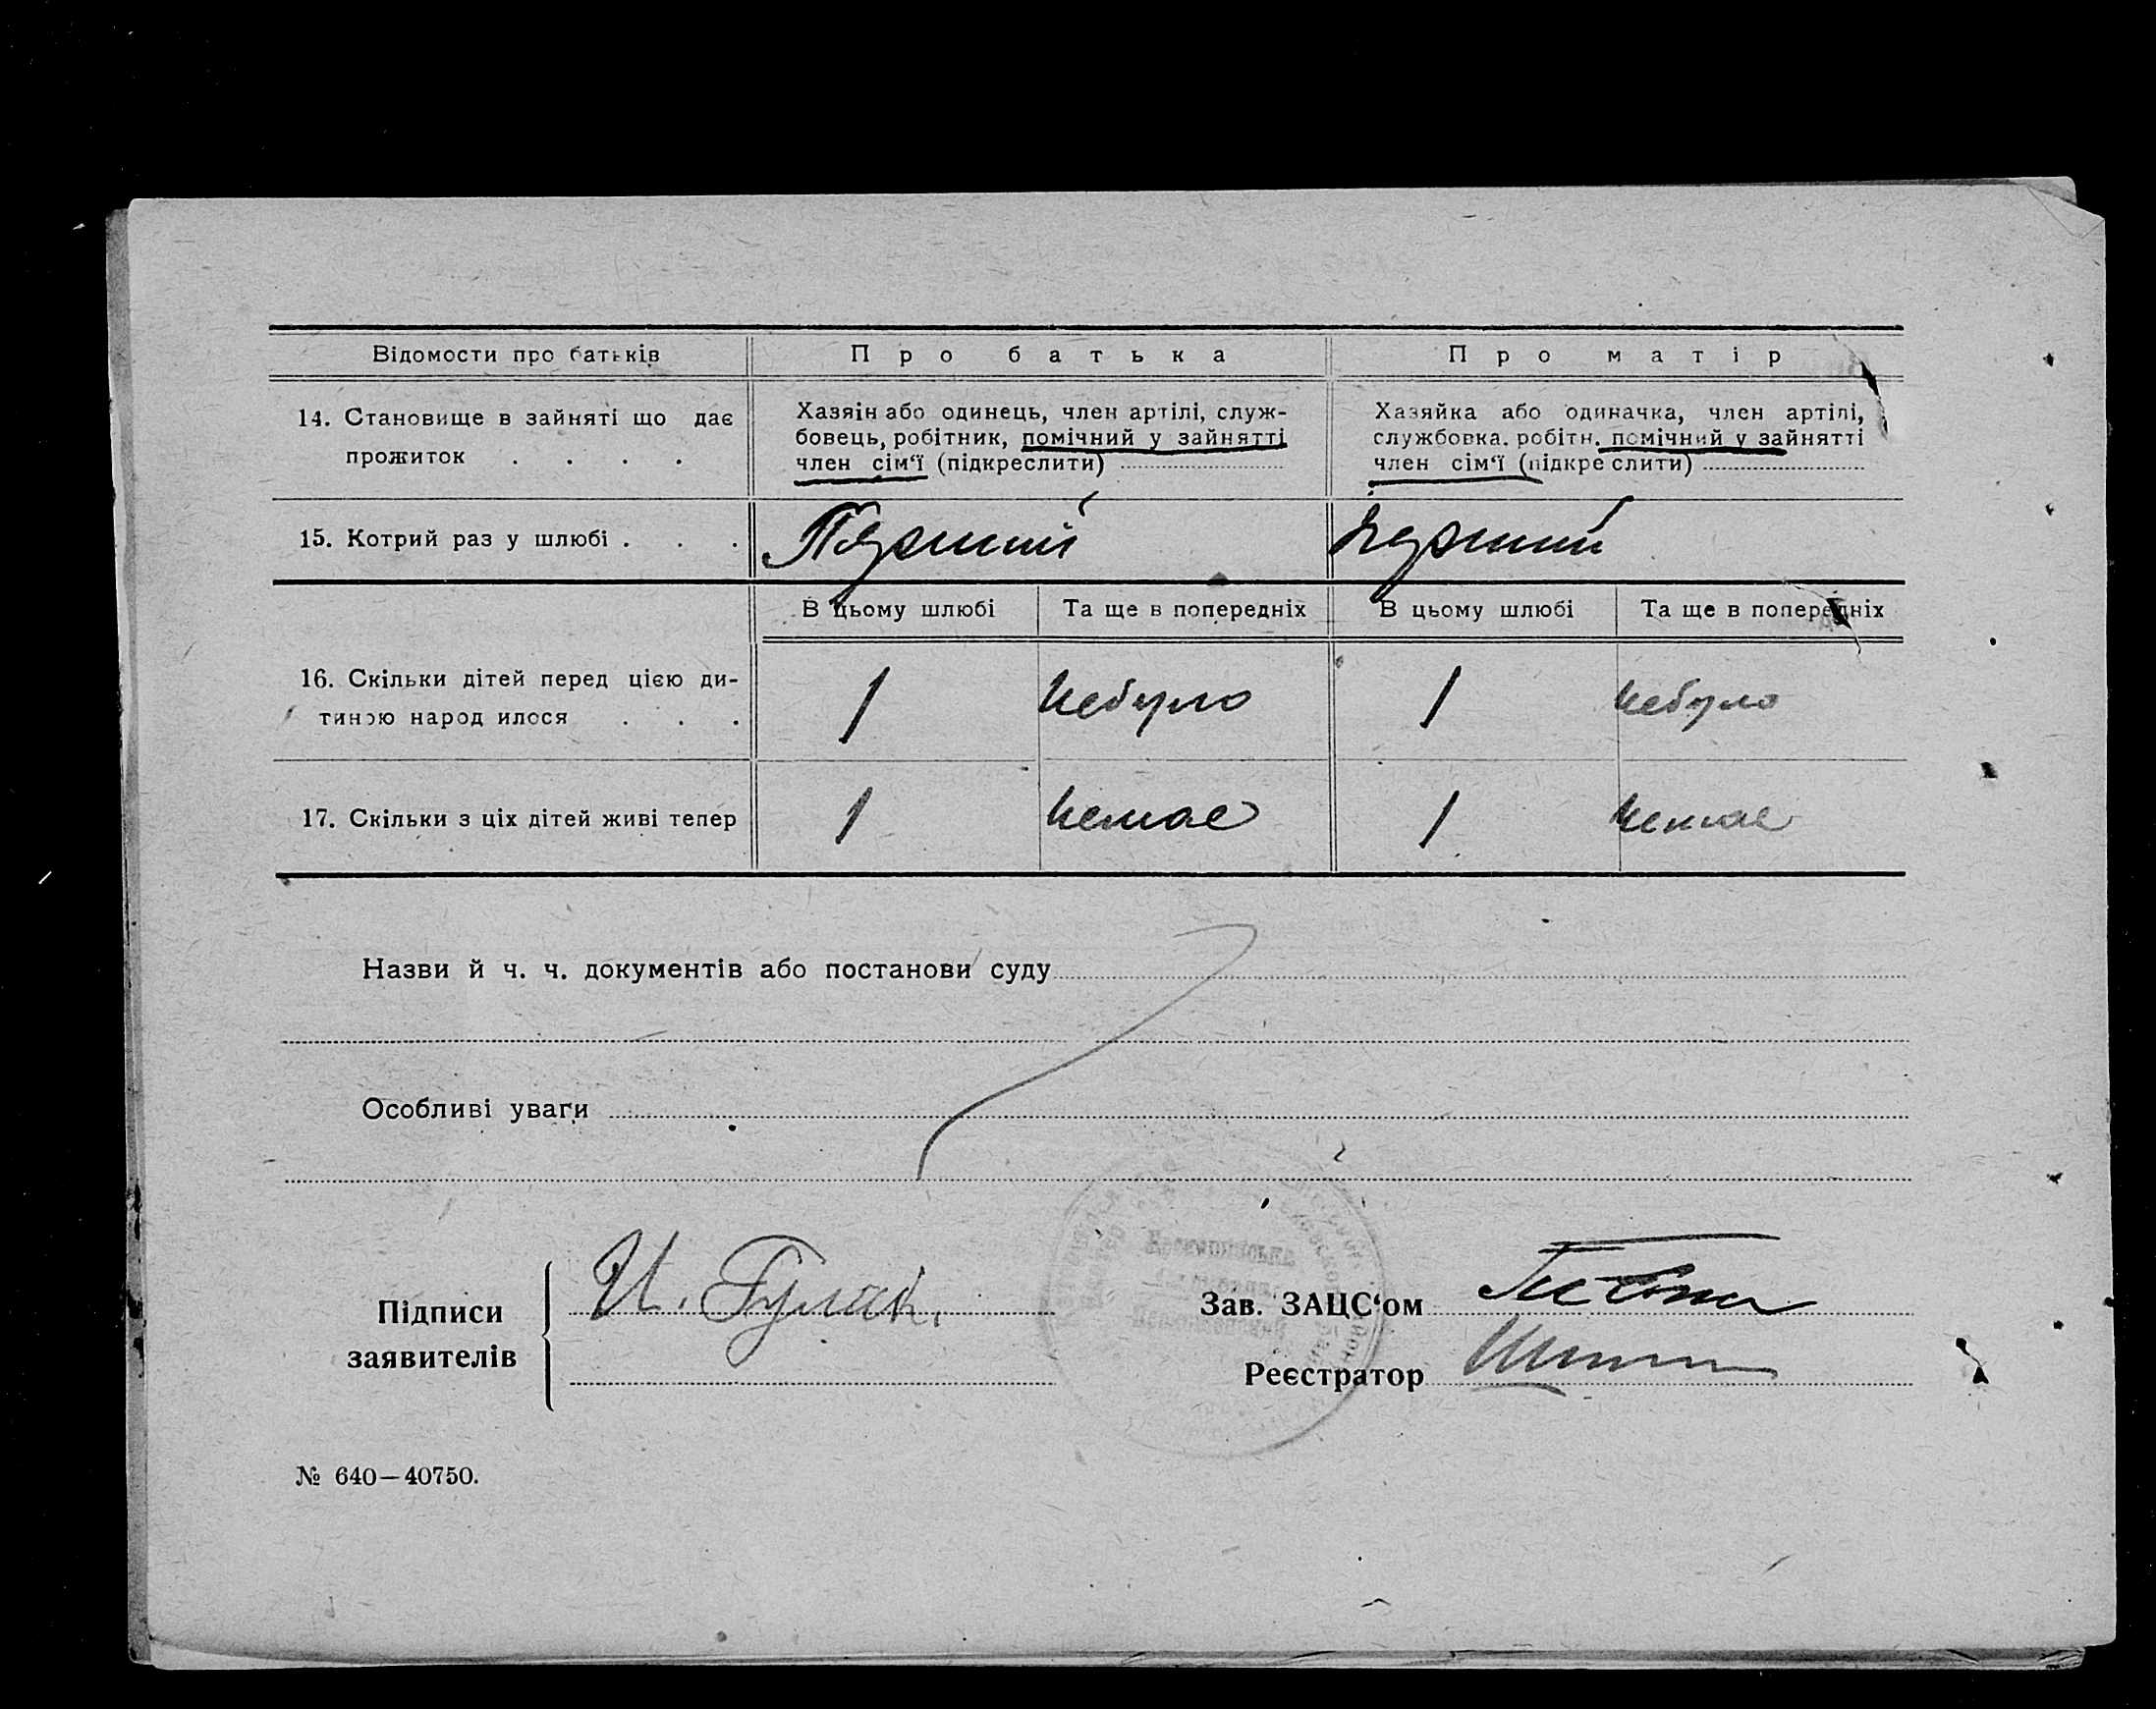 Відомости про батьків
Про батька
Про матір
14. Становище в зайняті що дає
прожиток . . . .
Хазяїн або одинець, член артілі, служ-
бовець, робітник, помічний у зайнятті
член сім‘ї (підкреслити)
Хазяйка або одиначка, член артілі,
службовка. робітн. помічний у зайнятті
член сім‘ї (підкреслити)
15. Котрий раз у шлюбі . . .
Перший
перший
В цьому шлюбі
Та ще в попередніх
В цьому шлюбі
Та ще в попередніх
16. Скільки дітей перед цією ди-
тиною народилося . . .
1
небуло
1
небуло
17. Скільки з ціх дітей живі тепер
1
немає
1
немає
Назви й ч. ч. документів або постанови суду
Особливі уваги
Підписи
заявителів
И. Гулак.
Зав. ЗАЦС‘ом
Реєстратор
№ 640—40750.